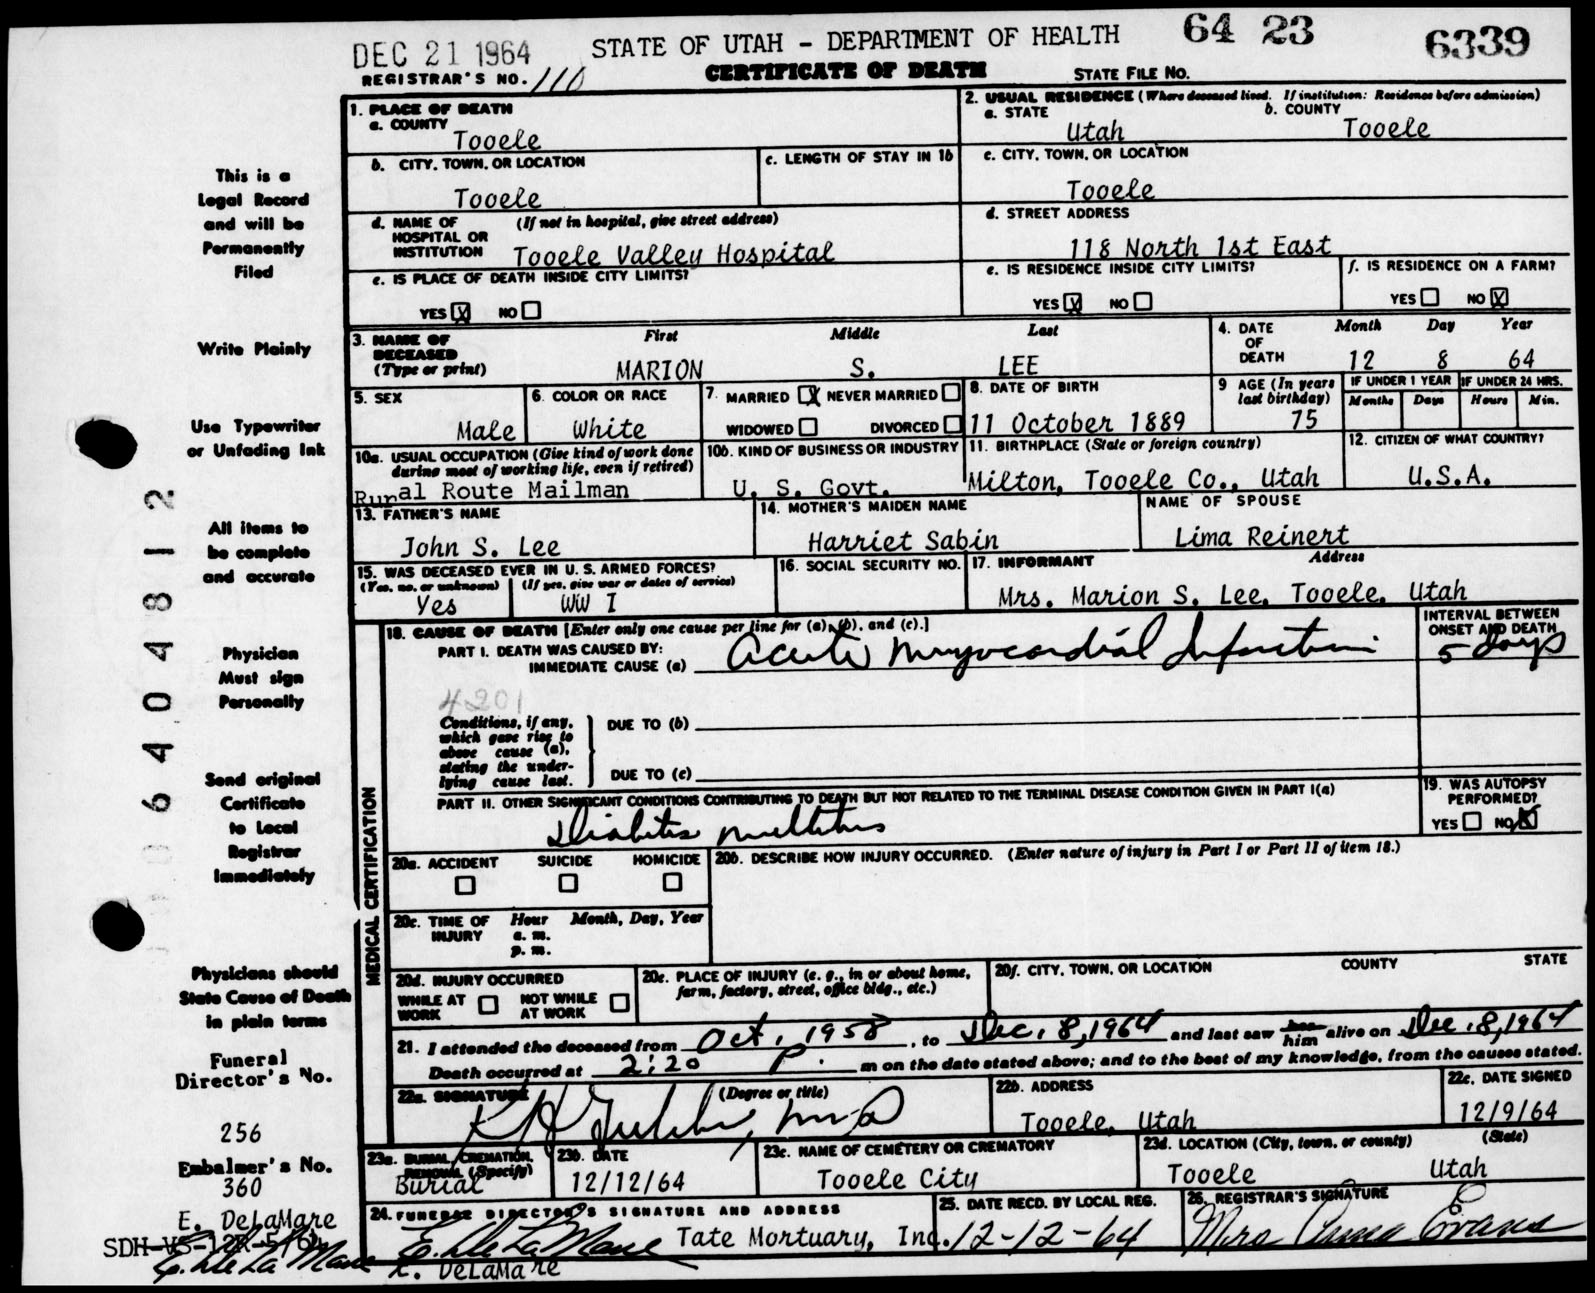 DEC 21 1964 STATE OF UTAH - DEPARTMENT OF HEALTH 64 23 6339
REGISTRAR'S NO. 110 CERTIFICATE OF DEATH STATE FILE NO.
1. PLACE OF DEATH
a. COUNTY
Tooele
2. USUAL RESIDENCE (Where deceased lived. If institution: Residence before admission)
a. STATE b. COUNTY
Utah Tooele
b. CITY, TOWN, OR LOCATION
Tooele
c. LENGTH OF STAY IN 1b
c. CITY, TOWN, OR LOCATION
Tooele
d. NAME OF HOSPITAL OR INSTITUTION (If not in hospital, give street address)
Tooele Valley Hospital
d. STREET ADDRESS
118 North 1st East
e. IS PLACE OF DEATH INSIDE CITY LIMITS?
YES X NO
e. IS RESIDENCE INSIDE CITY LIMITS?
YES X NO
f. IS RESIDENCE ON A FARM?
YES NO X
3. NAME OF DECEASED (Type or print)
First Middle Last
MARION S. LEE
4. DATE OF DEATH
Month Day Year
12 8 64
5. SEX
Male
6. COLOR OR RACE
White
7. MARRIED X NEVER MARRIED
WIDOWED DIVORCED
8. DATE OF BIRTH
11 October 1889
9 AGE (In years last birthday)
75
IF UNDER 1 YEAR
Months Days
IF UNDER 24 HRS.
Hours Min.
10a. USUAL OCCUPATION (Give kind of work done during most of working life, even if retired)
Rural Route Mailman
10b. KIND OF BUSINESS OR INDUSTRY
U. S. Govt.
11. BIRTHPLACE (State or foreign country)
Milton, Tooele Co., Utah
12. CITIZEN OF WHAT COUNTRY?
U.S.A.
13. FATHER'S NAME
John S. Lee
14. MOTHER'S MAIDEN NAME
Harriet Sabin
NAME OF SPOUSE
Lima Reinert
15. WAS DECEASED EVER IN U. S. ARMED FORCES?
(Yes, no, or unknown) (If yes, give war or dates of service)
Yes WW I
16. SOCIAL SECURITY NO.
17. INFORMANT Address
Mrs. Marion S. Lee, Tooele, Utah
MEDICAL CERTIFICATION
18. CAUSE OF DEATH [Enter only one cause per line for (a), (b), and (c).]
PART I. DEATH WAS CAUSED BY:
IMMEDIATE CAUSE (a) Acute Myocardial Infarction
INTERVAL BETWEEN ONSET AND DEATH
5 days
4201
Conditions, if any, which gave rise to above cause (a), stating the underlying cause last.
DUE TO (b)
DUE TO (c)
PART II. OTHER SIGNIFICANT CONDITIONS CONTRIBUTING TO DEATH BUT NOT RELATED TO THE TERMINAL DISEASE CONDITION GIVEN IN PART I(a)
Diabetes mellitus
19. WAS AUTOPSY PERFORMED?
YES NO X
20a. ACCIDENT SUICIDE HOMICIDE
20b. DESCRIBE HOW INJURY OCCURRED. (Enter nature of injury in Part I or Part II of item 18.)
20c. TIME OF INJURY Hour Month, Day, Year
a. m.
p. m.
20d. INJURY OCCURRED
WHILE AT WORK NOT WHILE AT WORK
20e. PLACE OF INJURY (e. g., in or about home, farm, factory, street, office bldg., etc.)
20f. CITY, TOWN, OR LOCATION COUNTY STATE
21. I attended the deceased from Oct, 1958, to Dec. 8, 1964 and last saw her him alive on Dec. 8, 1964
Death occurred at 2:20 P. m on the date stated above; and to the best of my knowledge, from the causes stated.
22a. SIGNATURE (Degree or title)
M.D
22b. ADDRESS
Tooele, Utah
22c. DATE SIGNED
12/9/64
23a. BURIAL, CREMATION, REMOVAL (Specify)
Burial
23b. DATE
12/12/64
23c. NAME OF CEMETERY OR CREMATORY
Tooele City
23d. LOCATION (City, town, or county) (State)
Tooele Utah
24. FUNERAL DIRECTOR'S SIGNATURE AND ADDRESS
E. DeLaMare Tate Mortuary, Inc.
E. DeLaMare
25. DATE RECD. BY LOCAL REG.
12-12-64
26. REGISTRAR'S SIGNATURE
Mrs Anna Evans
This is a
Legal Record
and will be
Permanently
Filed
Write Plainly
Use Typewriter
or Unfading Ink
All items to
be complete
and accurate
Physician
Must sign
Personally
Send original
Certificate
to Local
Registrar
Immediately
Physicians should
State Cause of Death
in plain terms
Funeral
Director's No.
256
Embalmer's No.
360
E. DeLaMare
SDH-VS-12R-5/61
E. DeLaMare
06404812